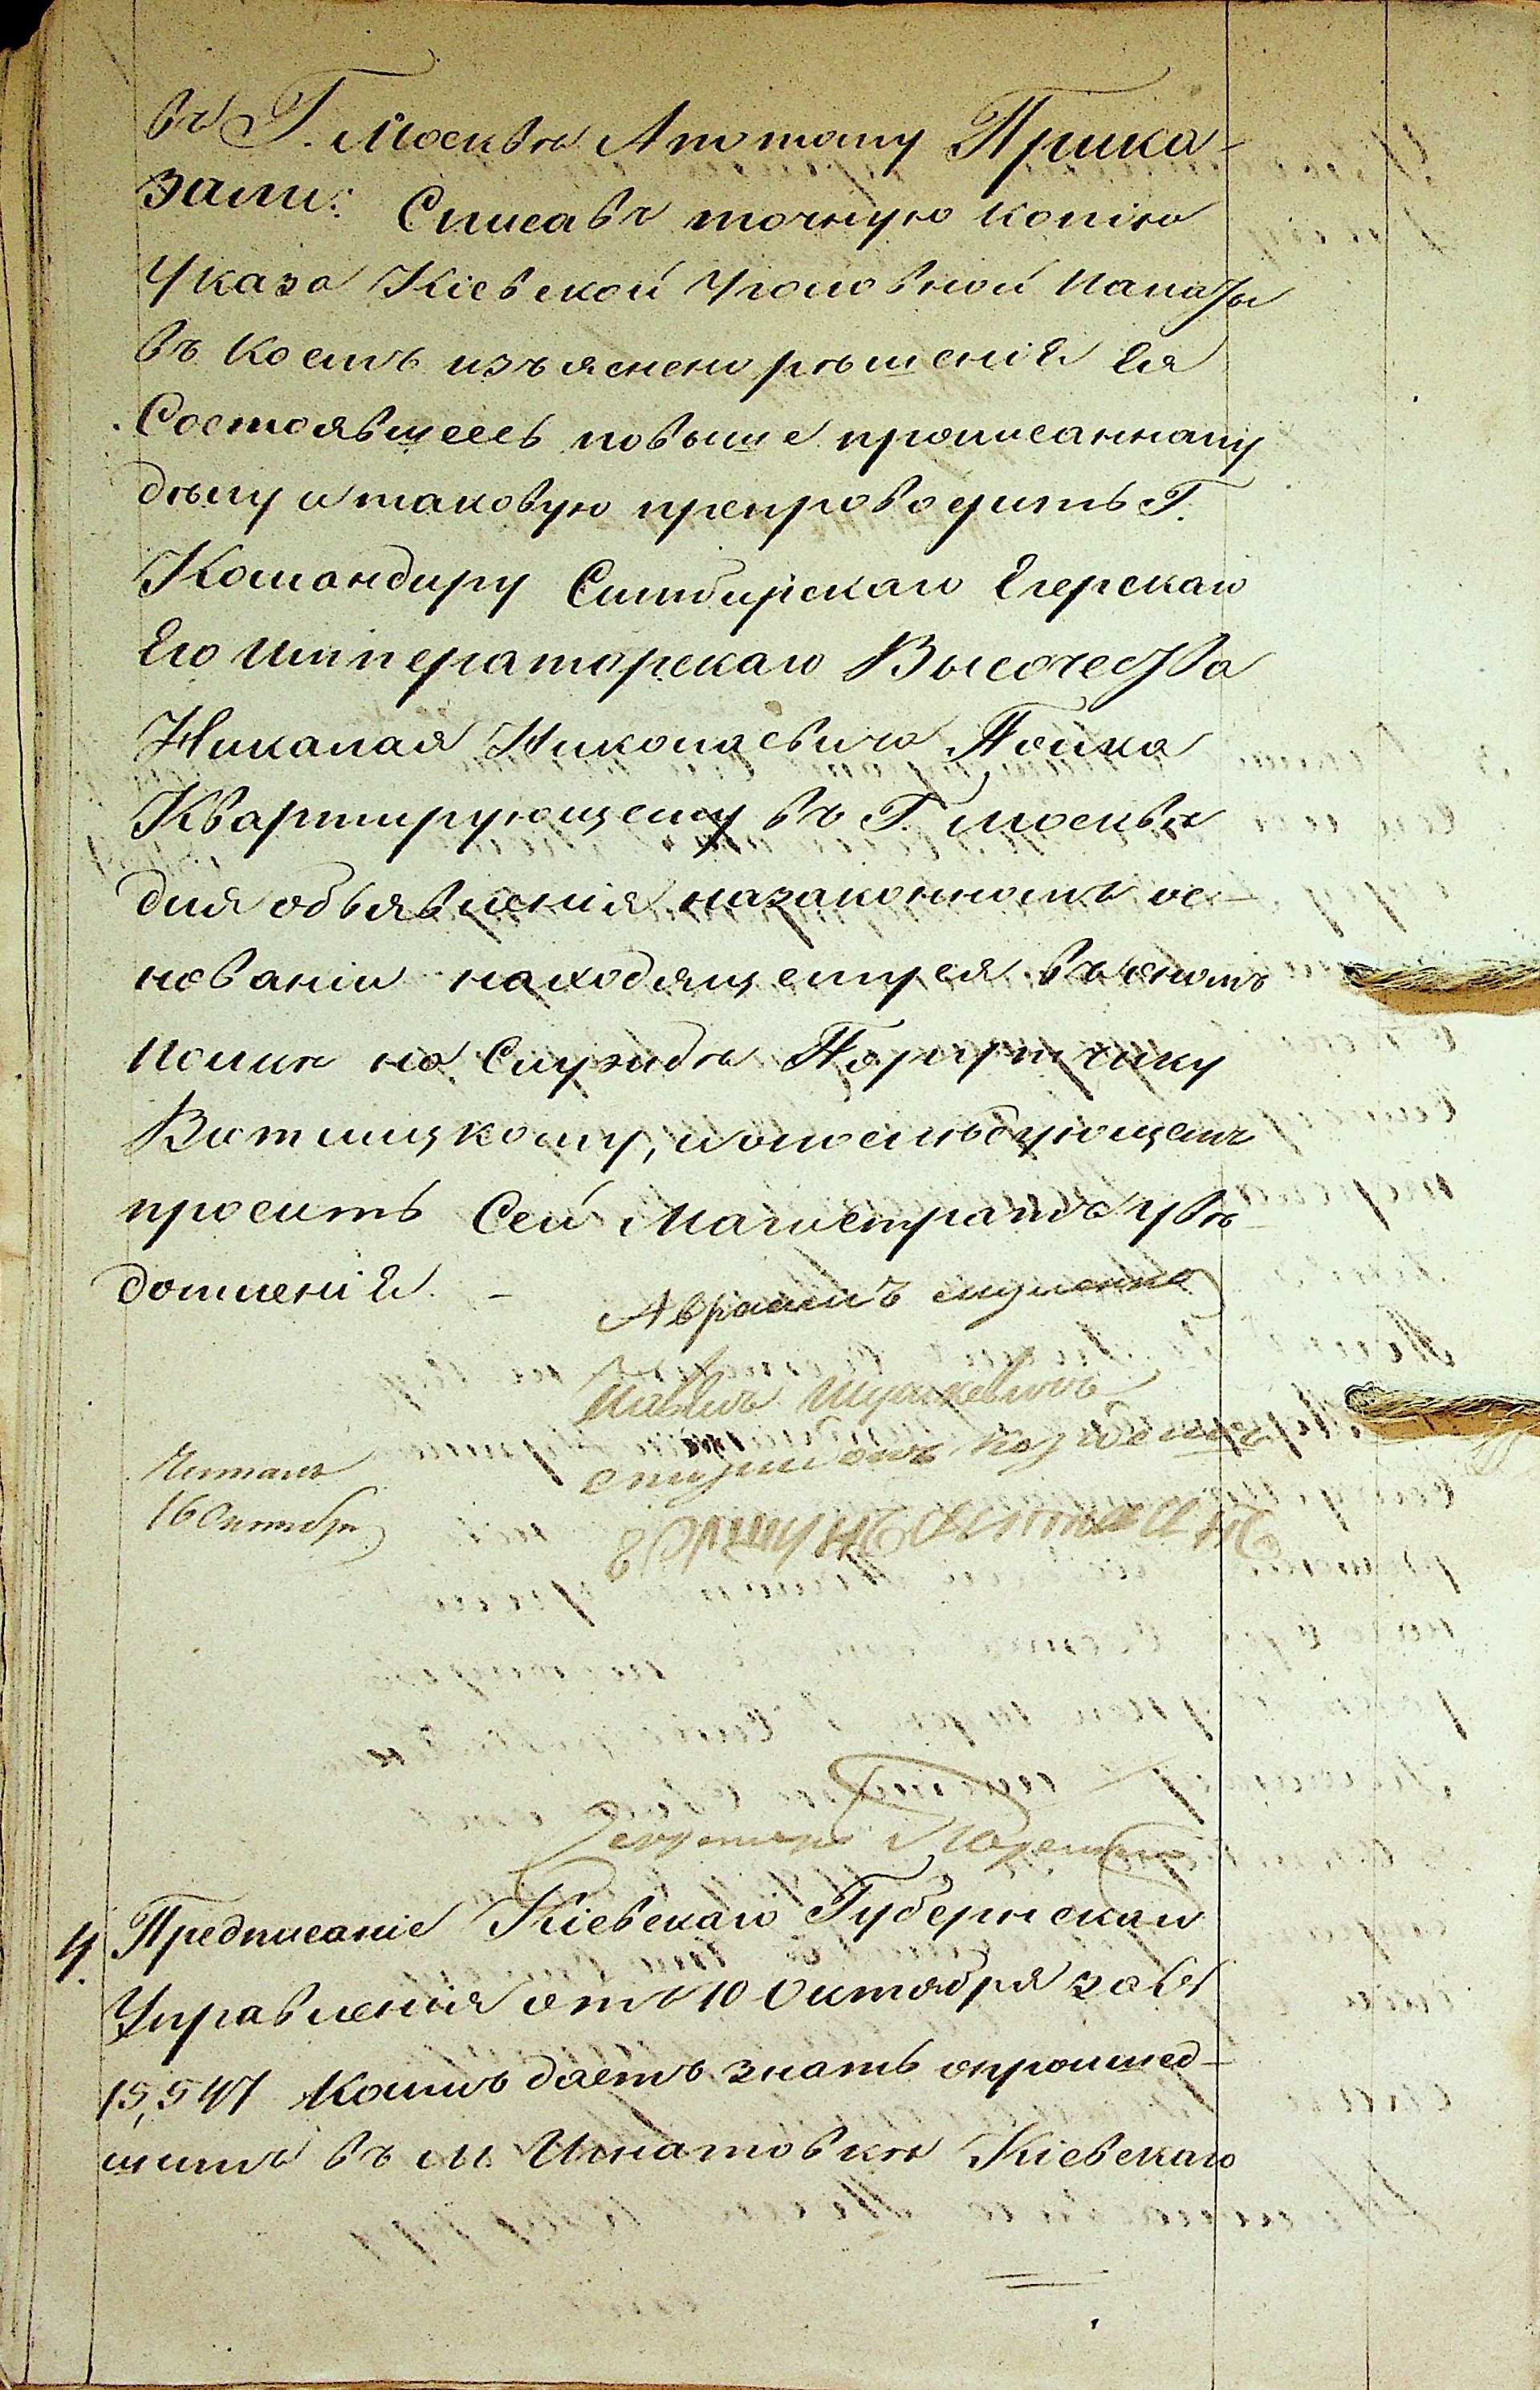 въ Г. Москвѣ Апотому Прика-
зали: Списавъ точную копію
Указа Кіевской Уголовной Палаты
въ коемъ изъяснено рѣшеніе Ея
Состоявшееся повыше прописанному
дѣлу и таковую препроводить Г.
Командиру Симбирскаго Егерскаго
Его Императорскаго Высочества
Николая Николаевича Полка
Квартирующему въ Г. Москвѣ
для объявленія назаконномъ ос-
нованіи находящемуся въ ономъ
Полкѣ на Службѣ Поручику
Витлицкому, и опослѣдующемъ
просить Сей Магистратъ увѣ-
домленія. -
Аврамъ
Читалъ
16 Октября
Секретарь
4. Предписаніе Кіевскаго Губернскаго
Управленія отъ 10 Октября за №
15,547 Коимъ даетъ знать опрошед-
шимъ въ м. Игнатовкѣ Кіевскаго